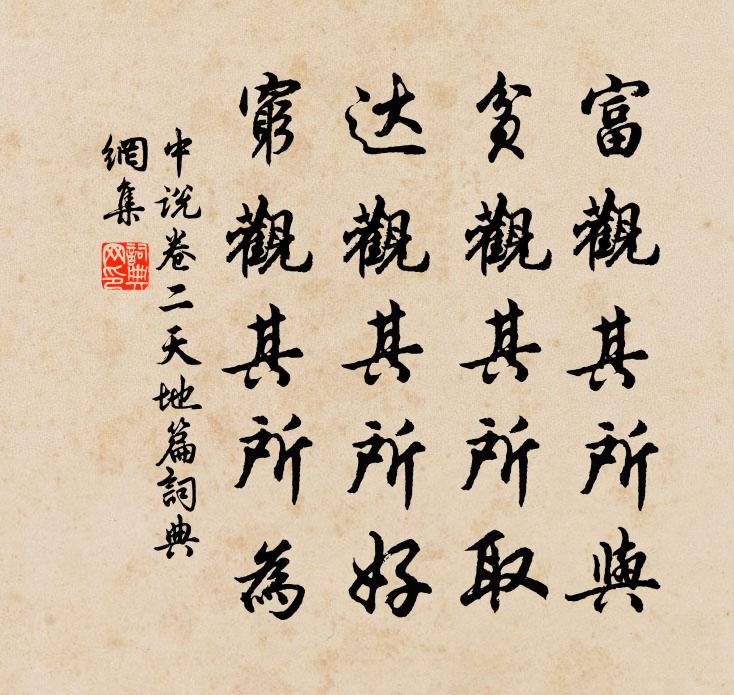 富觀其所與
貧觀其所取
达觀其所好
窮觀其所為
中说卷二天地篇詞典
網集
詞典
网印